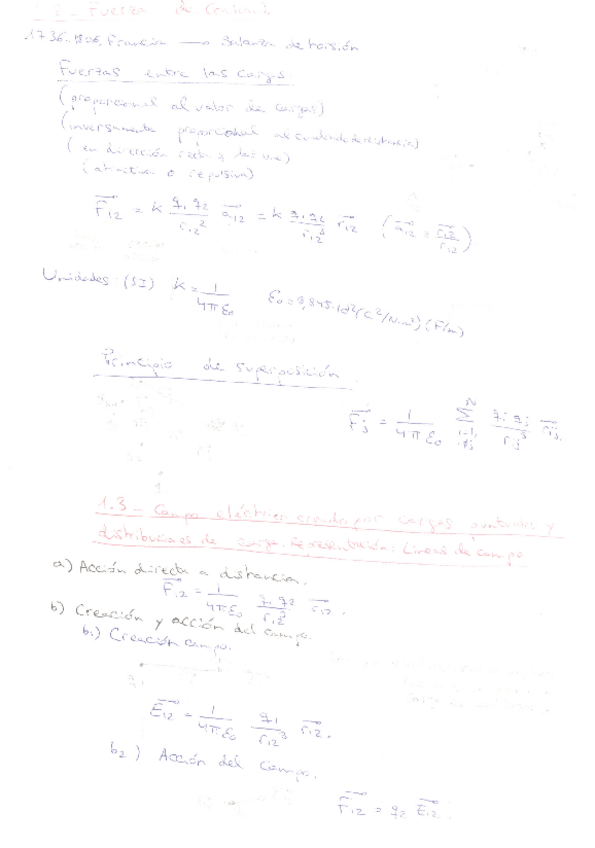 1.2 - Fuerza de Coulomb
1736-1806, Francia → Balanza de torsión
Fuerzas entre las cargas.
(proporcional al valor de cargas)
(inversamente proporcional al cuadrado de distancia)
(en dirección recta q las une)
(atractiva o repulsiva)
F₁₂ = k q₁ q₂ / r₁₂² a₁₂ = k q₁ q₂ / r₁₂³ r₁₂ (a₁₂ = r₁₂ / r₁₂)
Unidades (SI) k = 1 / 4πε₀ (C²/N·m²) (F/m)
Principio de superposición
Fj = 1 / 4πε₀ Σ qi qj / rij³ rij.
1.3 - Campo eléctrico creado por cargas puntuales y
distribuciones de carga. Representación: Líneas de campo
a) Acción directa a distancia.
F₁₂ = 1 / 4πε₀ q₁ q₂ / r₁₂³ r₁₂.
b) Creación y acción del campo.
b₁) Creación campo.
E₁₂ = 1 / 4πε₀ q₁ / r₁₂³ r₁₂.
b₂) Acción del campo.
F₁₂ = q₂ E₁₂.